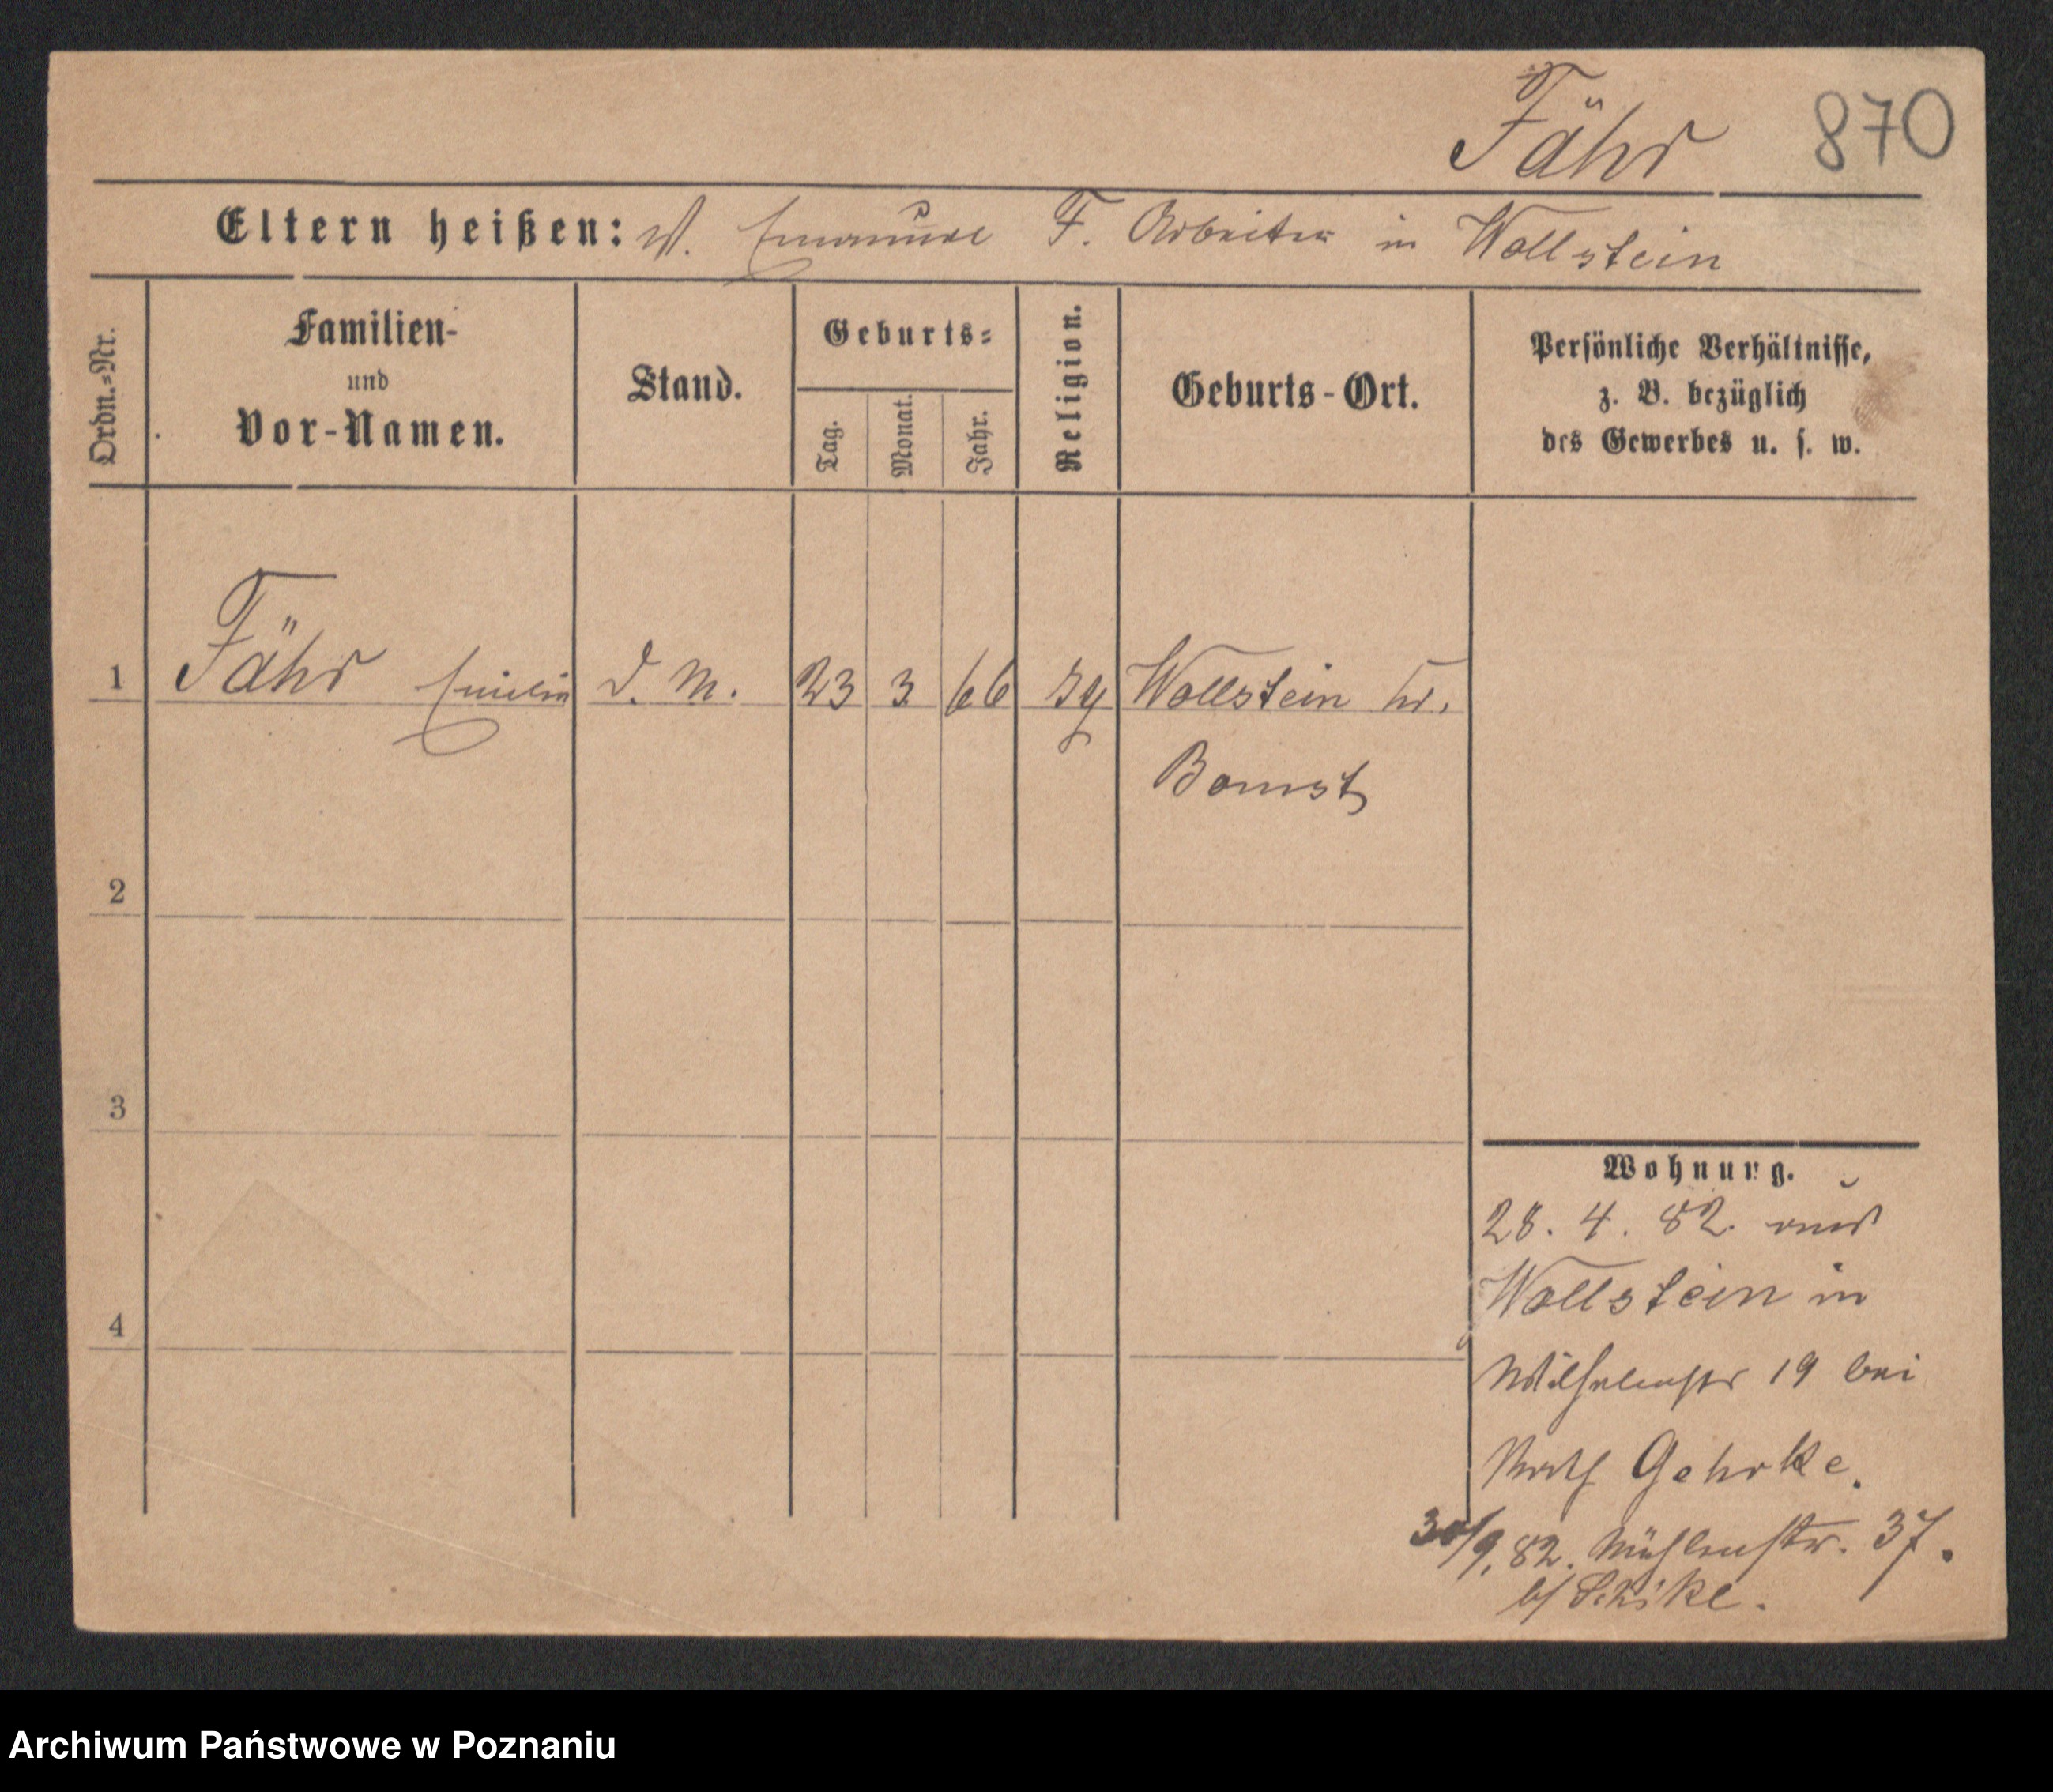 Fähr 870
Eltern heißen: V. Emanuel F. Arbeiter in Wollstein
Ordn.-Nr.
Familien-
und
Vor-Namen.
Stand.
Geburts-
Tag.
Monat.
Jahr.
Religion.
Geburts-Ort.
Persönliche Verhältnisse,
z. B. bezüglich
des Gewerbes u. s. w.
1 Fähr Emilie D. M. 23 3 66 Wollstein Kr.
Bomst
2
3
4
Wohnung.
28. 4. 82. aus
Wollstein in
Wilhelmstr 19 bei
Gehrke.
30/9. 82. Mühlenstr. 37.
b/
Archiwum Państwowe w Poznaniu